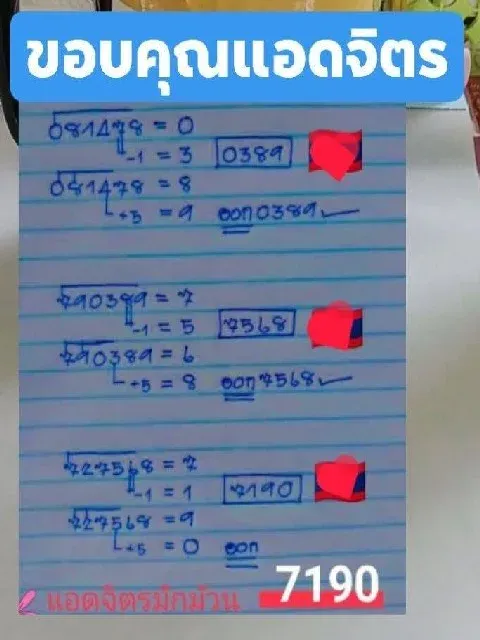 ขอบคุณแอดจิตร
081478 = 0
-1 = 3 0389
081478 = 8
+5 = 9 ออก 0389
790389 = 7
-1 = 5 7568
790389 = 6
+5 = 8 ออก 7568
727568 = 7
-1 = 1 7190
727568 = 9
+5 = 0 ออก
7190
แอดจิตรมักม้วน